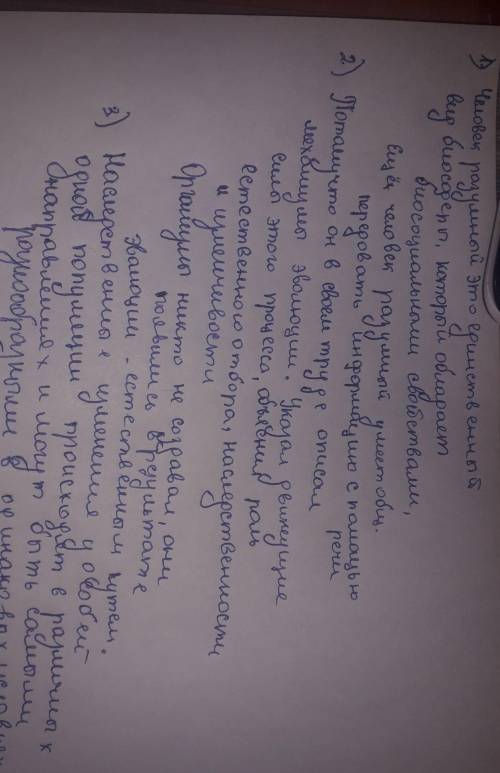 1) Человек разумный это единственный
вид биосферы, который обладает
биосоциальными свойствами,
ещё человек разумный умеет общ.
передовать информацию с помощью
речи
2) Потамучто он в своем труде описал
механизмы эволюции. Указал движущие
силы этого процесса, объеснил роль
естественного отбора, наследственности
и изменчивости
Организмы никто не создавал, они
появились в результате
Эволюции - естественным путем.
3) Наследственные изменения у особей
одной популяции происходят в различных
направлениях и могут быть самыми
разнообразными в одинаковых условиях